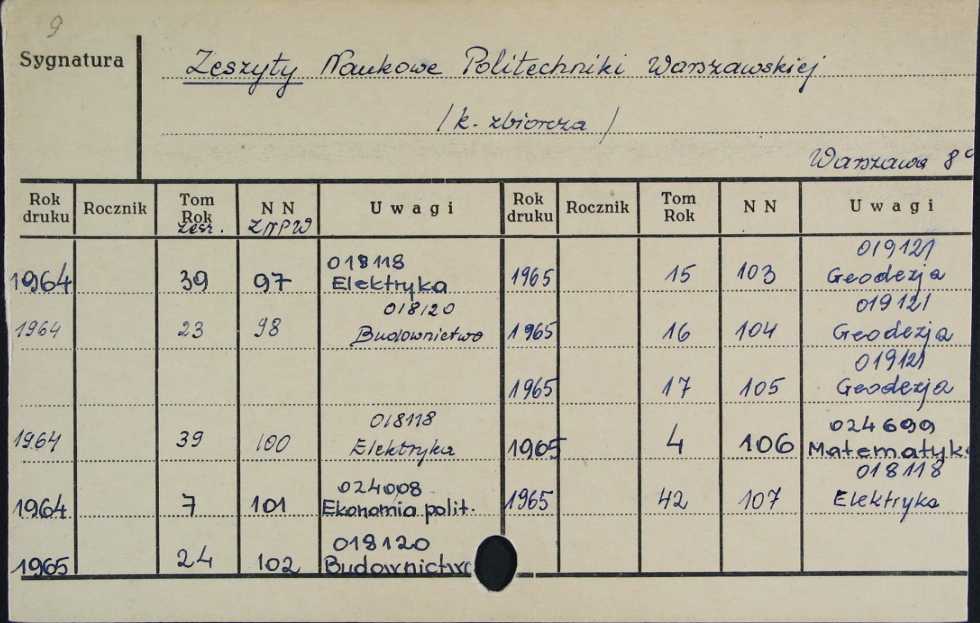 9
Sygnatura
Zeszyty Naukowe Politechniki Warszawskiej
/k. zbiorcza/
Warszawa 8°
Rok druku Rocznik Tom Rok zesz. N N ZNPW Uwagi Rok druku Rocznik Tom Rok N N Uwagi
1964 39 97 018118 Elektryka 1965 15 103 019121 Geodezja
1964 23 98 018120 Budownictwo 1965 16 104 019121 Geodezja
1965 17 105 019121 Geodezja
1964 39 100 018118 Elektryka 1965 4 106 024699 Matematyka
1964 7 101 024008 Ekonomia polit. 1965 42 107 018118 Elektryka
1965 24 102 018120 Budownictwo